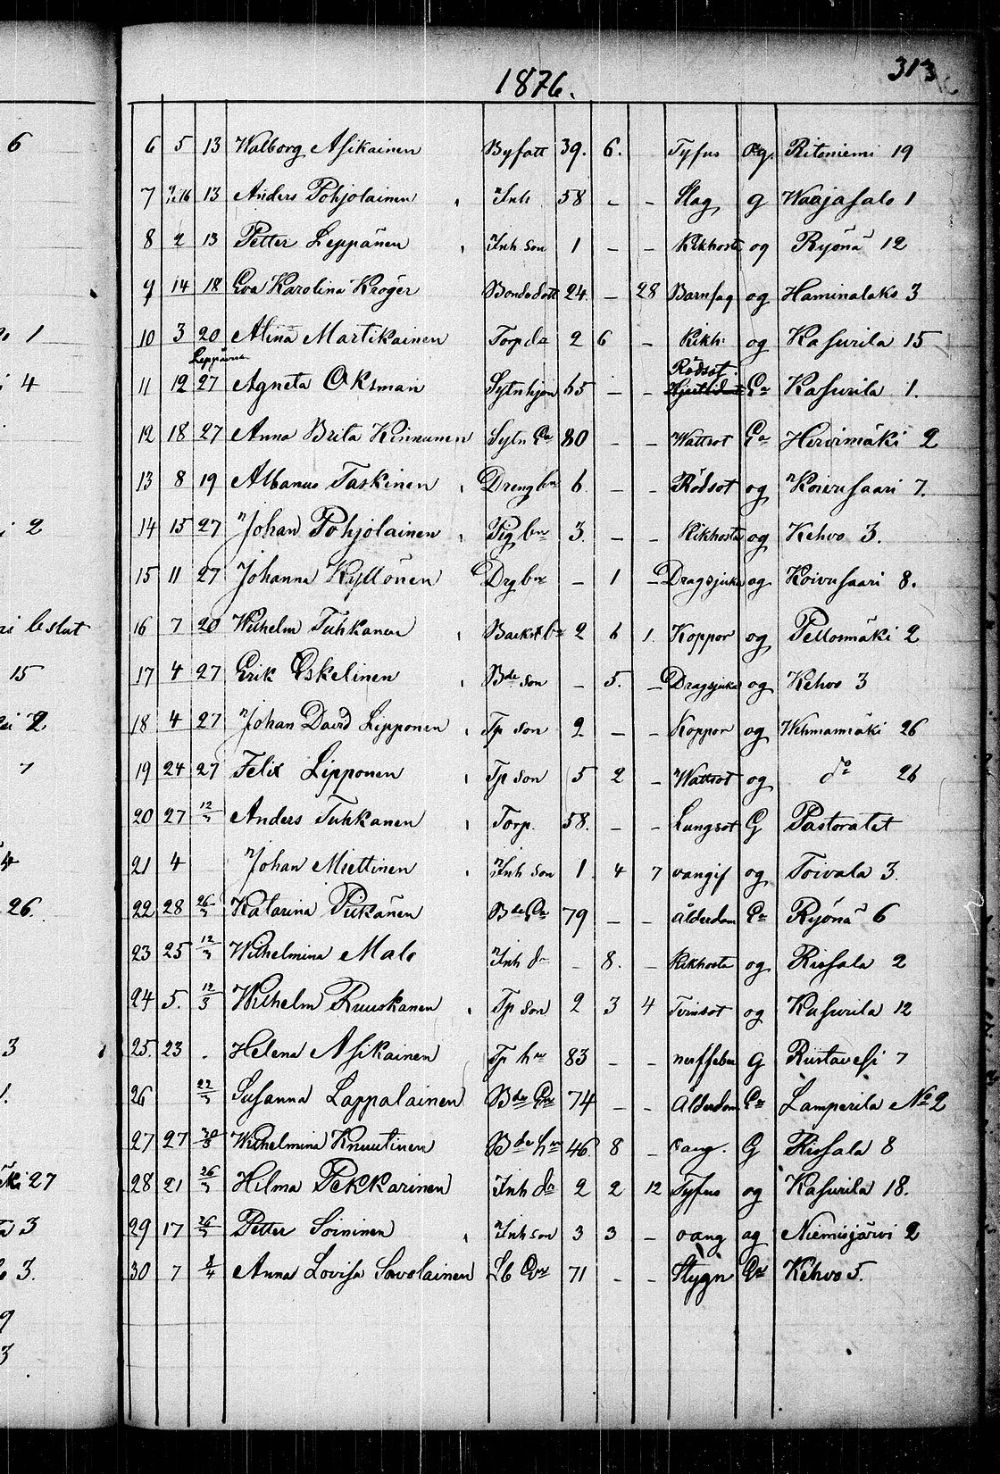 313
1876.
6 5 13 Walborg Asikainen Bysatt 39. 6. Tyfus og. Ritoniemi 19
7 13 Anders Pohjolainen Inh 58 - - Slag g Waajasalo 1
8 2 13 Petter Leppänen Inh son 1 - - Kikhosta og Ryönä 12
9 14 18 Eva Karolina Kröger Bondedott 24 - 28 Barnsag og Haminalaks 3
10 3 20 Alina Martikainen Torp da 2 6 - Kikh. og Kasurila 15
Leppänen Rödsot.
11 12 27 Agneta Oksman Sytnhjon 65 - - Enk Kasurila 1.
12 18 27 Anna Brita Kinnunen Sytn En 80 - - Wattsot En Hirvimäki 2
13 8 19 Albanus Taskinen Dreng bn 6. - - Rödsot og Koivusaari 7.
14 15 27 Johan Pohjolainen Pig bn 3. - - Kikhosta og Kehvo 3.
15 11 27 Johanna Kyllönen Drg bn - 1 - Dragsjuka og Koivusaari 8.
16 7 20 Wilhelm Tuhkanen 2 6 1. Koppor og Peltosmäki 2
17 4 27 Erik Eskelinen Bde son - 5. - Dragsjuka og Kehvo 3
18 4 27 Johan David Lipponen Tp son 2 - - Koppor og Wehmasmäki 26
19 24 27 Felix Lipponen Tp son 5 2 - Wattsot og do 26
20 27 12/3 Anders Tuhkanen Torp. 58. - - Lungsot G Pastoratet
21 4 Johan Miettinen Inh son 1. 4 7 oangif og Toivala 3.
22 28 26/3 Katarina Pitkänen Bde En 79 - - ålderdom En Ryönä 6
23 25 12/3 Wilhelmina Malo Inh dr - 8. - Kikhosta og Rissala 2
24 5. 12/3 Wilhelm Ruuskanen Tp son 2 3 4 Tvinsot og Kasurila 12
25. 23 . Helena Asikainen Tp hu 83 - - nerffeber g Rustavesi 7
26 22/3 Susanna Lappalainen Bde En 74 - - Ålderdom En Lamperila No 2
27 27 Wilhelmina Knuutinen Bde hu 46 8 - oang. G Rissala 8
28 21 26/3 Hilma Pekkarinen Inh dr 2 2 12 Tyfus og Kasurila 18.
29 17 26/3 Petter Soininen Inh son 3 3 - oang og Niemisjärvi 2
30 7 Anna Lovisa Savolainen Lb Enk 71 - - Stygn En Kehvo 5.
6
1
4
2
beslut
15
2
7
4
26.
3
1.
27
3
3.
9
3